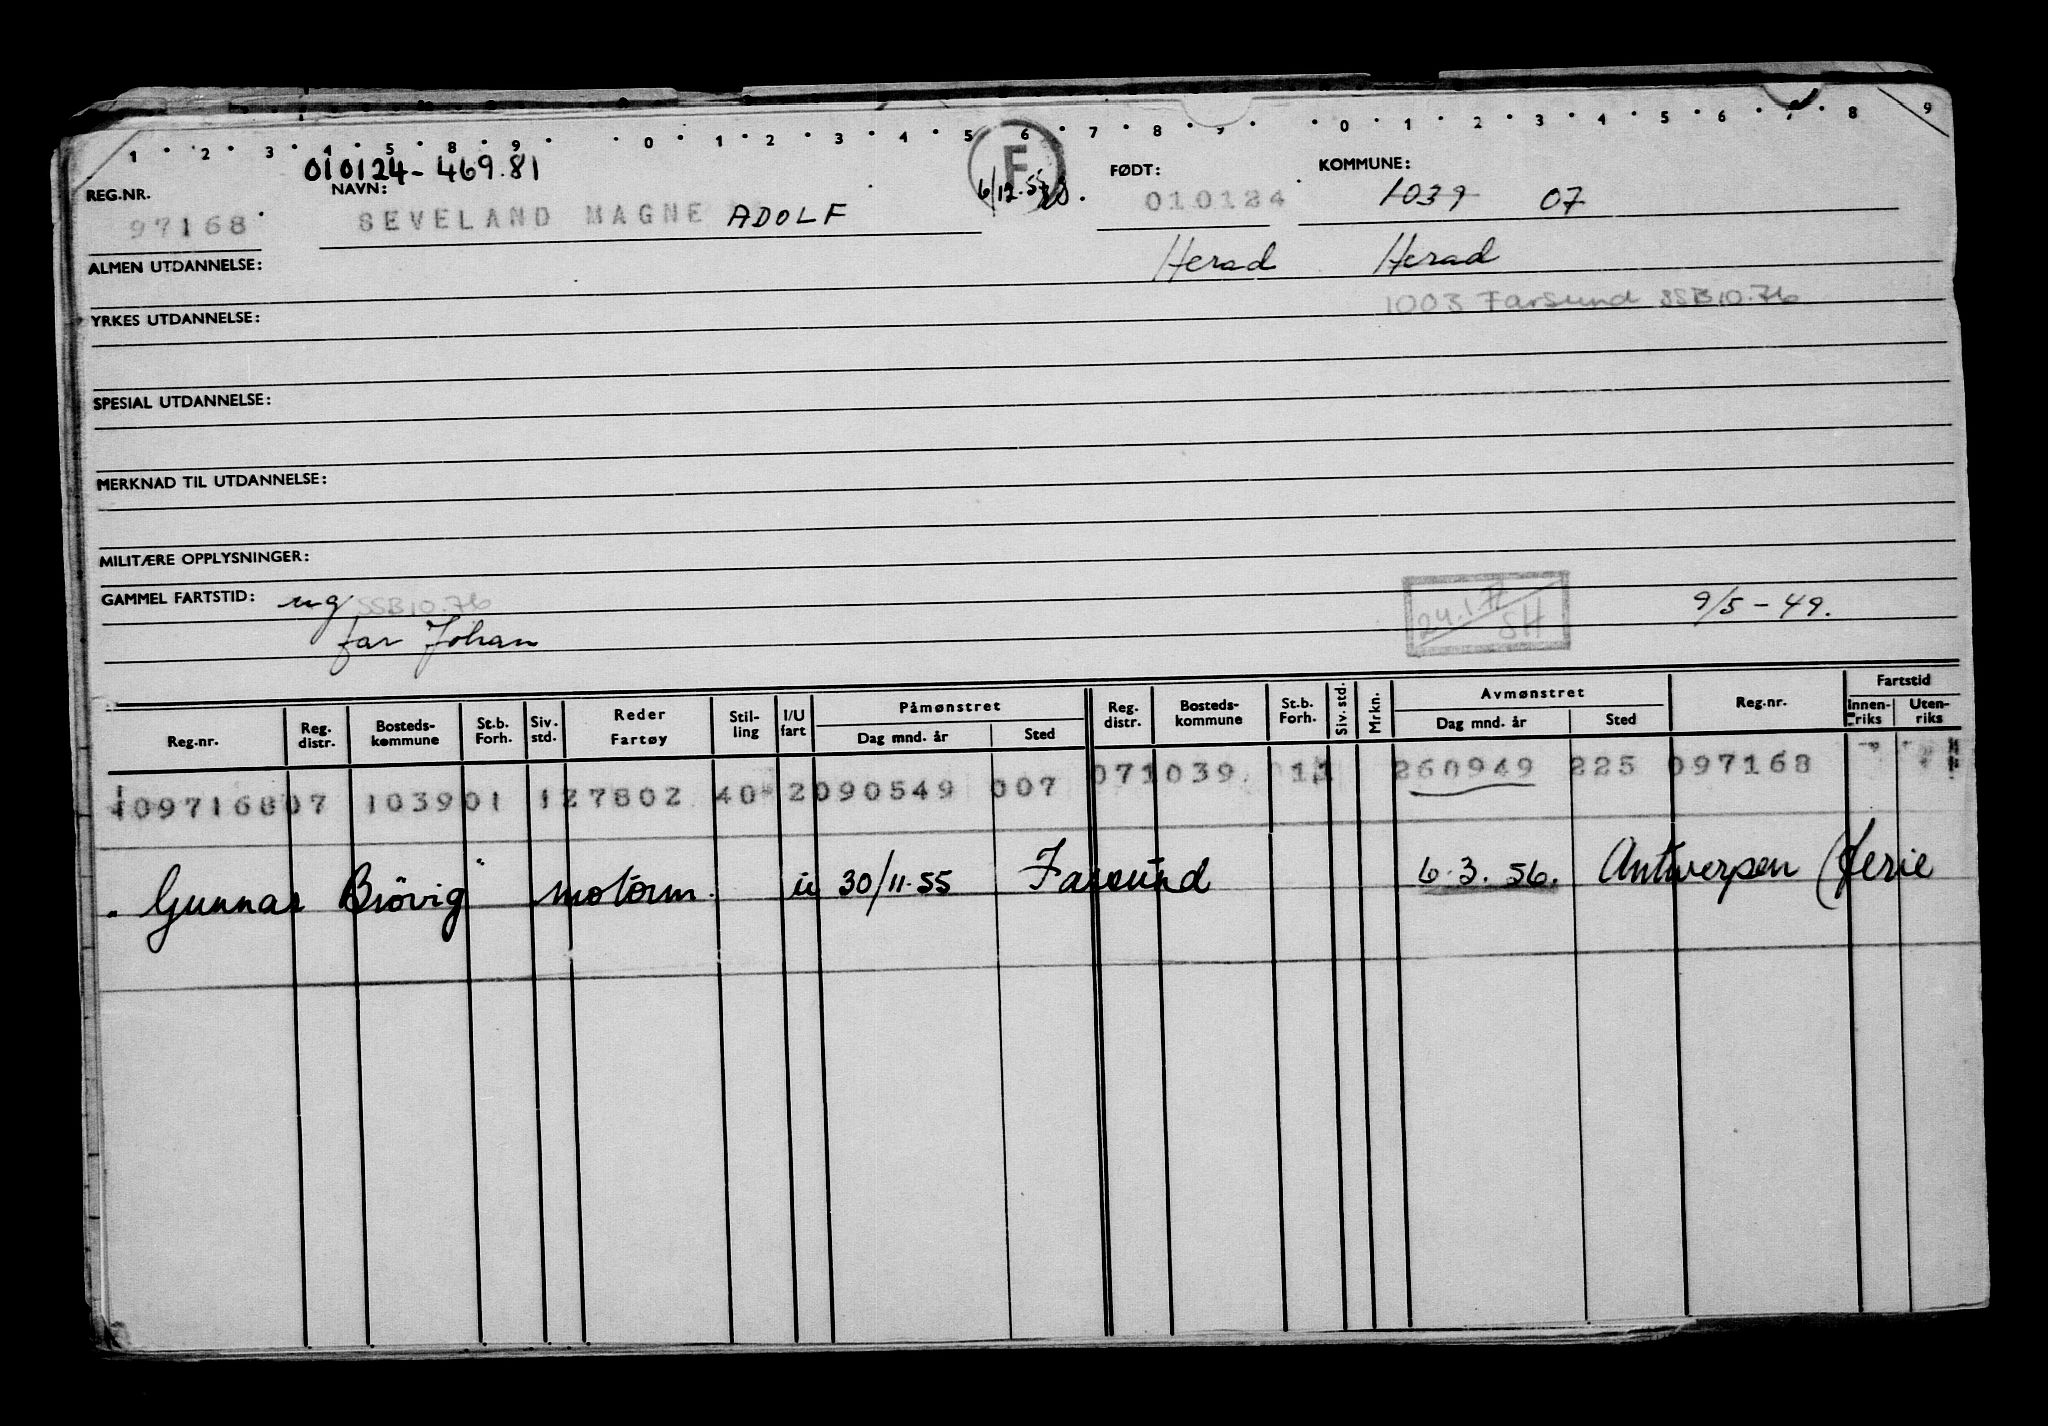 1 2 3 4 5 8 9 0 1 2 3 4 5 6 7 8 9 0 1 2 3 4 5 6 7 8 9
010124-469.81
REG.NR. NAVN: F FØDT: KOMMUNE:
97168 SEVELAND MAGNE ADOLF 6/12.55 010124 1039 07
ALMEN UTDANNELSE: Herad Herad
1003 Farsund SSB 10.76
YRKES UTDANNELSE:
SPESIAL UTDANNELSE:
MERKNAD TIL UTDANNELSE:
MILITÆRE OPPLYSNINGER:
GAMMEL FARTSTID: ug SSB 10.76 9/5-49.
far Johan SH
Reg.nr. Reg. distr. Bosteds-kommune St.b. Forh. Siv. std. Reder Fartøy Stil-ling I/U fart Påmønstret Dag mnd. år Sted Reg. distr. Bosteds-kommune St.b. Forh. Siv. std. Mrkn. Avmønstret Dag mnd. år Sted Reg.nr. Fartstid Innen-riks Uten-riks
09716807 103901 127802 40 2090549 007 071039 011 260949 225 097168
"Gunnar Brövig" motorm. u 30/11-55 Farsund 6.3.56. Antwerpen (ferie